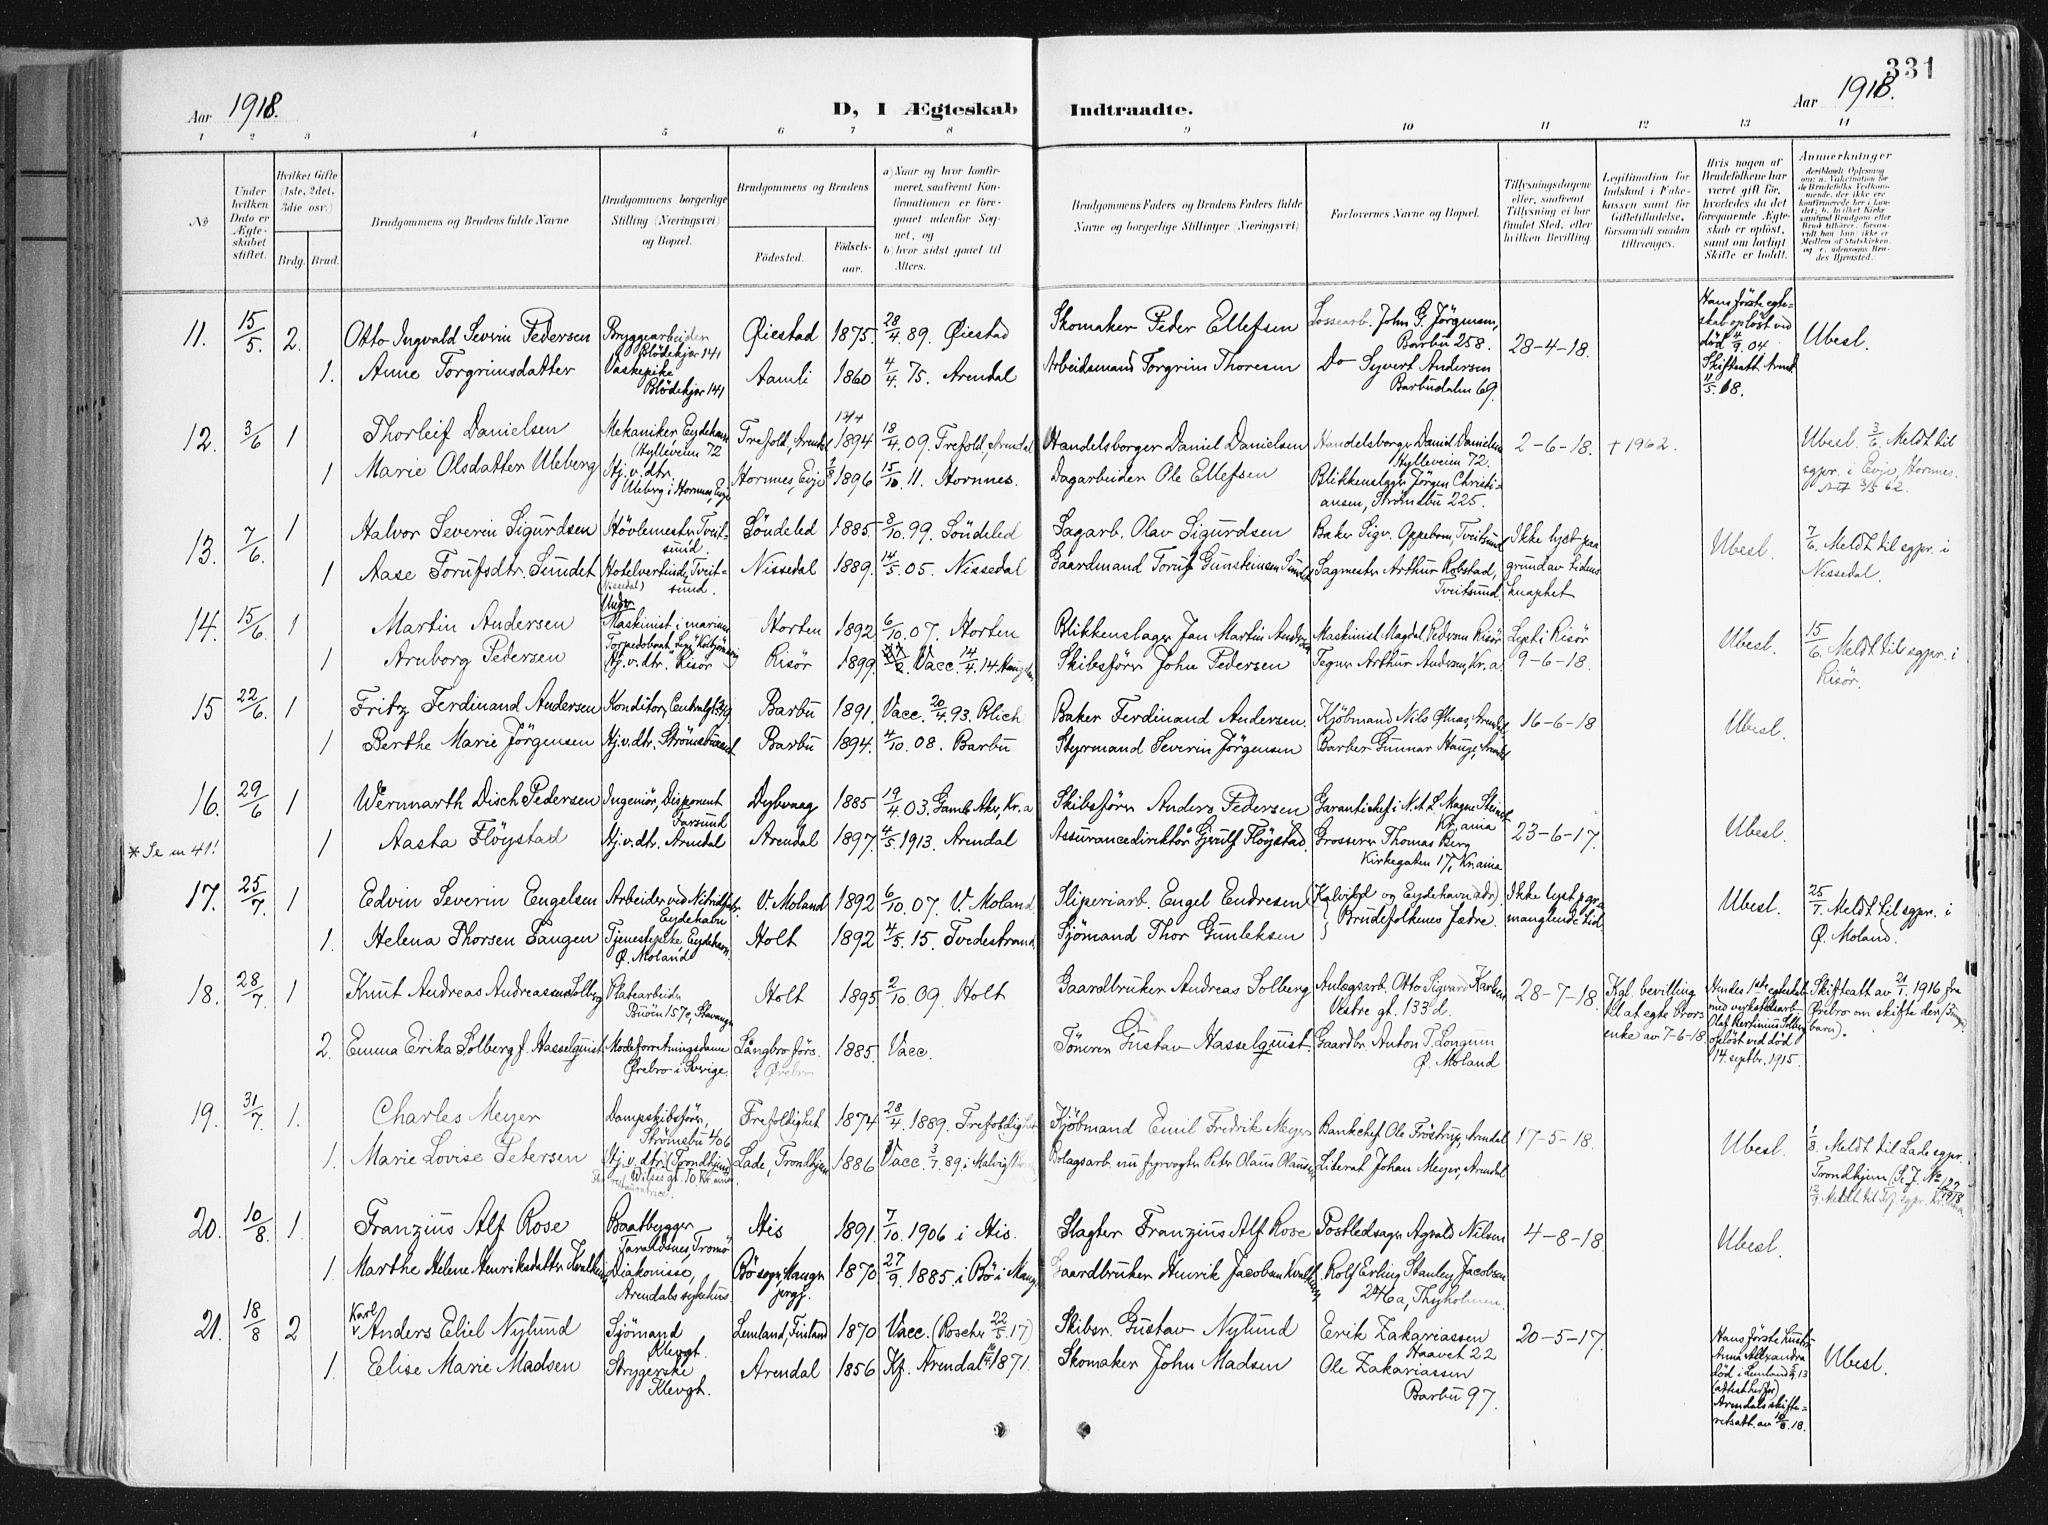 331
Aar 1918.
D, I Ægteskab Indtraadte.
Aar 1918.
1 2 3 4 5 6 7 8 9 10 11 12 13 14
No
Under hvilken Dato er Ægteskabet stiftet.
Hvilket Gifte (1ste, 2det, 3die osv.)
Brdg. Brud.
Brudgommens og Brudens fulde Navne
Brudgommens borgerlige Stilling (Næringsvei) og Bopæl.
Brudgommens og Brudens
Fødested.
Fødselsaar.
a) Naar og hvor konfirmeret, saafremt Konfirmationen er foregaaet udenfor Sognet, og
b) hvor sidst gaaet til Alters.
Brudgommens Faders og Brudens Faders fulde Navne og borgerlige Stillinger (Næringsvei)
Forlovernes Navne og Bopæl.
Tillysningsdagene eller, saafremt Tillysning ei har fundet Sted, efter hvilken Bevilling.
Legitimation for Indskud i Enkekassen samt for Giftetilladelse, forsaavidt saadan tiltrænges.
Hvis nogen af Brudefolkene har været gift før, hvorledes da det foregaaende Ægteskab er opløst, samt om lovligt Skifte er holdt.
Anmerkninger
11. 15/5. 2. Otto Ingvald Severin Pedersen Bryggearbeider Blödekjær 141 Øiestad 1875. 28/4. 89. Øiestad Skomaker Peder Ellefsen Lossearb. John G. Jörgensen, Barbu 258. 28-4-18. Hans förste egteskab oplöst ved död 4/9. 04 Skifteatt. Arendal 11/5. 18. Ubesl.
1. Anne Torgrimsdatter Vaskepike Blödekjær 141 Aamli 1860 4/4. 75. Arendal Arbeidsmand Torgrim Thoresen Do Syvert Andersen Barbudalen 69.
12. 3/6 1 Thorleif Danielsen Mekaniker Eydehavn (Hylleveien 72 Trefold., Arendal 13/4 1894 18/4. 09. Trefold., Arendal Handelsborger Daniel Danielsen Handelsborger Daniel Danielsen Hylleveien 72. 2-6-18. + 1962. Ubesl. 3/6. Meldt til sgpr. i Evje, Hornnes. 3/5 62.
1 Marie Olsdatter Uleberg Hj. v. dtr. Uleberg i Hornnes, Evje Hornnes, Evje 1896 15/10. 11. Hornnes. Dagarbeider Ole Ellefsen Blikkenslager Jörgen Christiansen, Strömsbu 225.
13. 7/6. 1 Halvor Severin Sigurdsen Hövlemester Tveitsund. Söndeled 1885. 8/10. 99. Söndeled Sagarb. Olav Sigurdsen Baker Sigv. Oppebøen, Tveitsund Ikke lyst paa grund av tidens knaphet Ubesl. 7/6. Meldt til sgpr. i Nissedal.
1 Aase Torufsdtr. Sundet Hotelvertinde, Tveitsund. (Nissedal) Nissedal 1889. 14/5. 05. Nissedal Gaardmand Toruf Gunsteinsen Sundet Sagmester Arthur Robstad, Tveitsund.
14. 15/6. 1 Martin Andersen Under Maskinist i marinen Torpedobaat Horten 1892 6/10. 07. Horten Blikkenslager Jan Martin Andersen Maskinist Magdal. Pedersen Risör Lyst i Risör 9-6-18. Ubesl. 15/6. Meldt til sgpr. i Risör.
1 Arnborg Pedersen Hj. v. dtr. Risör Risör 1899. Vacc. 14/4. 14. Skibsförer John Pedersen Tegner Arthur Andersen, Kr.a.
15 22/6. 1 Fritz Ferdinand Andersen Konditor, Barbu 1891. Vacc. 20/4. 93. Blich Baker Ferdinand Andersen. Kjöbmand Nils Ømas, Arendal 16-6-18 Ubesl.
1 Berthe Marie Jörgensen Hj. v. dtr. Strömsbu Barbu 1894. 4/10. 08. Barbu Styrmand Severin Jörgensen Barber Gunnar Hauge, Arendal
16. 29/6 1 Wernmarth Disch Pedersen Ingeniör, Disponent Farsund Dybvaag 1885 19/4. 03. Gamle Aker, Kr.a Skibsförer Anders Pedersen Garantichef i N.A.L. Magne Steinert Kr.ania 23-6-17. Ubesl.
* Se nr 41! 1 Aasta Flöystad Hj. v. dtr. Arendal Arendal 1897. 4/5. 1913. Arendal Assurancedirektör Gjerulf Flöystad. Grosserer Thomas Berg Kirkegaten 17, Kr.ania
17. 25/7. 1 Edvin Severin Engelsen Arbeider ved Nitridfabr. Eydehavn V. Moland 1892 6/10. 07. V. Moland. Sliperiarb. Engel Endresen (Kalvild og Eydehavn adr). Brudefolkenes Fædre. Ikke lyst pga manglende tid Ubesl. 25/7. Meldt til sgpr. i Ø. Moland.
1. Helena Thorsen Tangen Tjenestepike, Eydehavn Ø. Moland Holt 1892 4/5. 15. Tvedestrand. Sjömand Thor Gunleksen
18. 28/7. 1 Knut Andreas Andreassen Solberg Platearbeider Buöen 157c, Stavanger Holt 1895 2/10. 09. Holt Gaardbruker Andreas Solberg Anlagsarb. Otto Sigvard Karlsen Vestre gt. 133 d. 28-7-18 Kgl. bevilling til at egte brors enke av 7-6-18. Hendes 1ste egteskab med verkstedsarb. Olaf Bertinius Solberg oplöst ved död 14. septbr. 1915. Skifteatt av 21/1. 1916 fra Örebro om skifte der barn).
2. Emma Erika Solberg f. Hasselquist Modeforretningsdame Örebro i Sverige. Långbro förs. i Örebro 1885. Vacc. Gustav Hasselquist. Gaardbr. Anton T. Longum Ø. Moland
19. 31/7. 1. Charles Meyer Dampskibsförer, Strömsbu 406 Trefoldighet 1874 28/4. 1889. Trefoldighet Kjöbmand Emil Fredrik Meyer Bankchef Ole Fröstrup, Arendal 17-5-18. Ubesl. 1/8. Meldt til Lade sgpr. Trondhjem (Se J. No 127/1918
1. Marie Lovise Petersen Hj. v. dtr. (Trondhjem) Wilses gt. 10 Kr.ania Lade, Trondhjem 1886 Vacc. 3/7. 89. i Malvig Bolagsarb. nu fyrvogter Peter Olaus Olaussen Literat Johan Meyer, Arendal
20. 10/8. 1 Franzius Alf Rose Baatbygger Taraldsnes, Tromö His 1891. 7/10. 1906 i His. Slagter Franzius Alf Rose Postledsager Agvald Nilsen 4-8-18. Ubesl.
1. Marthe Helene Henriksdatter Kvalheim Diakonisse, Arendals sykehus. Bö sogn, Hauge 1870 27/9. 1885. i Bö i Gaardbruker Henrik Jacobsen Kvalheim Rolf Erling Stanley Jacobsen 246a, Thyholmen.
21. 18/8 2 Karl Anders Eliel Nylund Sjömand Klevgt. Lemland, Finland 1870 Vacc. (Rosche 22/5. 17) Skibsr. Gustav Nylund Erik Zakariassen Haavet 22 20-5-17. Hans förste hustru Anna Alexandra död i Lemland 13 (attest herfor) Arendals skifteretsatt. av 16/8. 18. Ubesl.
1. Elise Marie Madsen Strygerske Klevgt. Arendal 1856 Kf. Arendal 1871. Skomaker John Madsen Ole Zakariassen Barbu 97.